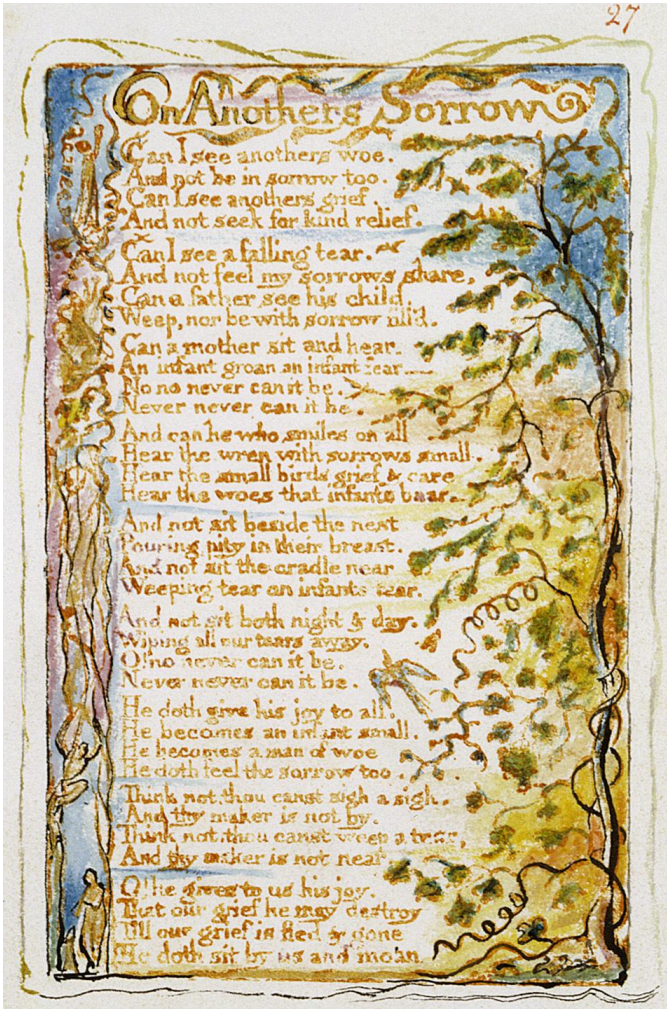 27
On Anothers Sorrow
Can I see anothers woe.
And not be in sorrow too.
Can I see anothers grief
And not seek for kind relief.
Can I see a falling tear.
And not feel my sorrows share,
Can a father see his child,
Weep, nor be with sorrow fill'd.
Can a mother sit and hear.
An infant groan an infant fear
No no never can it be.
Never never can it be.
And can he who smiles on all
Hear the wren with sorrows small.
Hear the small birds grief & care
Hear the woes that infants bear
And not sit beside the nest
Pouring pity in their breast.
And not sit the cradle near
Weeping tear on infants tear.
And not sit both night & day.
Wiping all our tears away.
O! no never can it be.
Never never can it be.
He doth give his joy to all.
He becomes an infant small.
He becomes a man of woe
He doth feel the sorrow too.
Think not thou canst sigh a sigh.
And thy maker is not by.
Think not thou canst weep a tear,
And thy maker is not near
O! he gives to us his joy.
That our grief he may destroy
Till our grief is fled & gone
He doth sit by us and moan